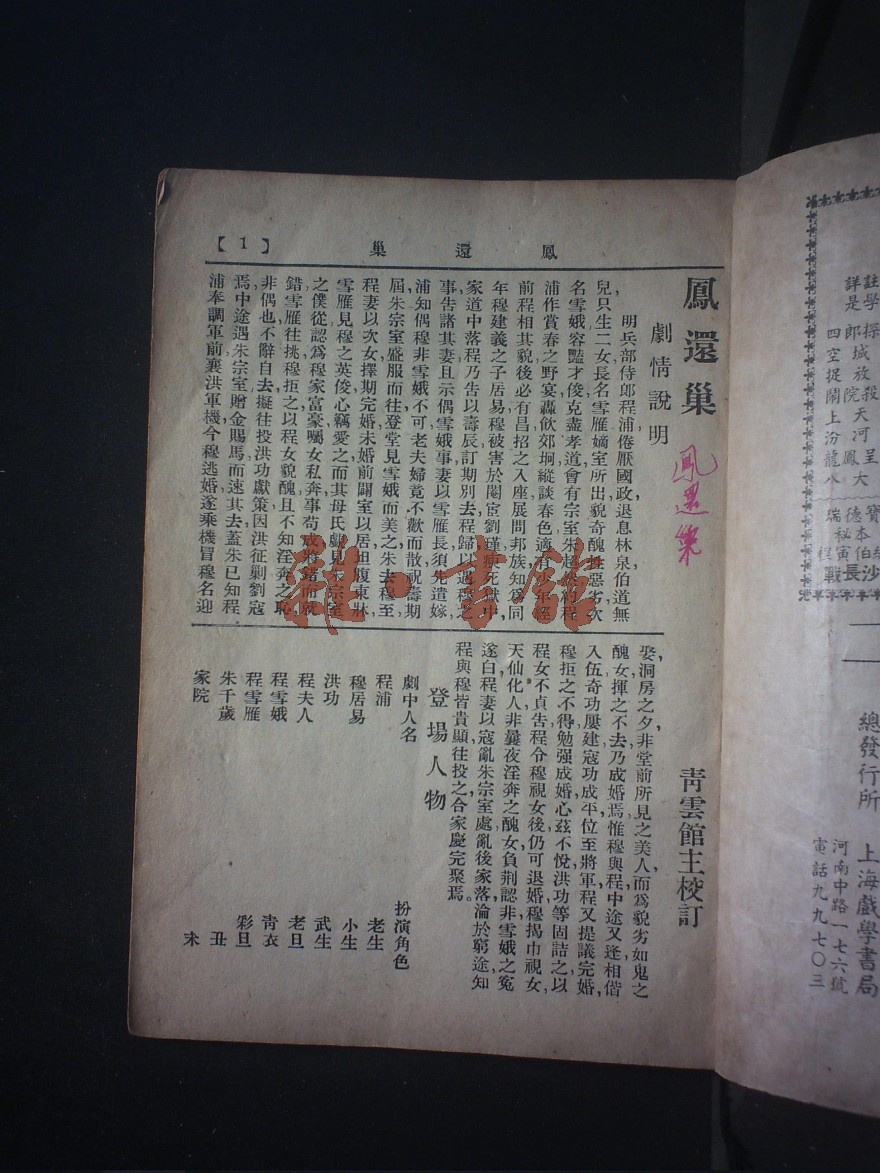 【1】
鳳還巢
鳳還巢
鳳還巢
青雲館主校訂
劇情說明
明兵部侍郎程浦倦厭國政退息林泉伯道無
兒只生二女長名雪雁嫡室所出貌奇醜性惡劣次
名雪娥容豔才俊克盡孝道會有宗室朱趙
浦作賞春之野宴轟飲郊坰縱談春色適有少年經
前程相其貌後必有昌招之入座展問邦族知爲同
年穆建義之子居易穆被害於閹宦劉瑾瘐死獄中
家道中落程乃告以壽辰訂期別去程歸以遇穆之
事告諸其妻且示偶雪娥事妻以雪雁長須先遣嫁
浦知偶穆非雪娥不可老夫婦竟不歡而散祝壽期
屆朱宗室盛服而往登堂見雪娥而美之朱去穆至
程妻以次女擇期完婚未婚前闢室以居坦腹東牀
雪雁見穆之英俊心竊愛之而其母氏戲見朱宗室
之僕從認爲穆家富豪囑女私奔事苟成將錯而就
錯雪雁往挑穆拒之以程女貌醜且不知淫奔之恥
非偶也不辭自去擬往投洪功獻策因洪征剿劉寇
焉中途遇朱宗室贈金賜馬而速其去蓋朱已知程
浦奉調軍前襄洪軍機今穆逃婚遂乘機冒穆名迎
娶洞房之夕非堂前所見之美人而爲貌劣如鬼之
醜女揮之不去乃成婚焉惟穆與程中途又逢相偕
入伍奇功屢建寇功成平位至將軍程又提議完婚
穆拒之不得勉强成婚心茲不悅洪功等固詰之以
程女不貞告程令穆視女後仍可退婚穆揭巾視女
天仙化人非曩夜淫奔之醜女負荆認非雪娥之冤
遂白程妻以寇亂朱宗室處亂後家落淪於窮途知
程與穆皆貴顯往投之合家慶完聚焉。
登場人物
劇中人名 扮演角色
程浦 老生
穆居易 小生
洪功 武生
程夫人 老旦
程雪娥 青衣
程雪雁 彩旦
朱千歲 丑
家院 末
總發行所 上海戲學書局
河南中路一七六號
電話九九七〇三